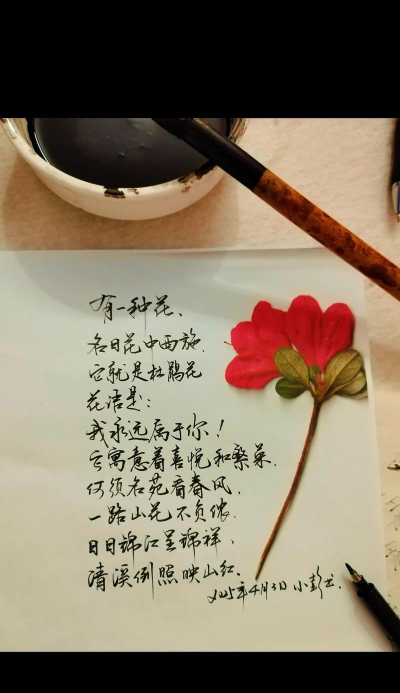 有一种花、
名曰花中西施.
它就是杜鹃花
花语是:
我永远属于你!
它寓意着喜悦和繁荣.
何须名苑看春风,
一路山花不负侬.
日日锦江呈锦祥、
清溪倒照映山红.
2025年4月3日 小彭书.